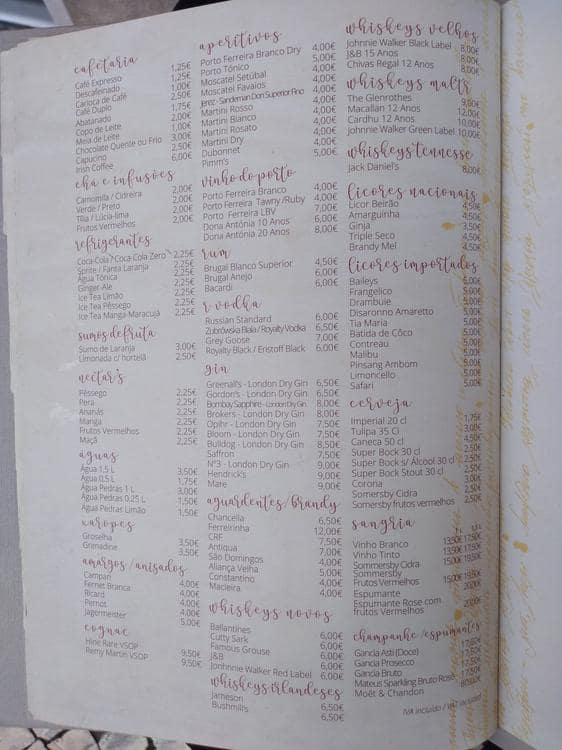 cafetaria
Café Expresso 1,25€
Descafeinado 1,25€
Carioca de Café 1,00€
Café Duplo 2,50€
Abatanado 1,75€
Copo de Leite 2,00€
Meia de Leite 1,00€
Chocolate Quente ou Frio 3,00€
Capucino 2,50€
Irish Coffee 6,00€
chá e infusões
Camomila / Cidreira 2,00€
Verde / Preto 2,00€
Tília / Lúcia-lima 2,00€
Frutos Vermelhos 2,00€
refrigerantes
Coca-Cola / Coca Cola Zero 2,25€
Sprite / Fanta Laranja 2,25€
Água Tónica 2,25€
Ginger Ale 2,25€
Ice Tea Limão 2,25€
Ice Tea Pêssego 2,25€
Ice Tea Manga-Maracujá 2,25€
sumos de fruta
Sumo de Laranja 3,00€
Limonada c/ hortelã 2,50€
nectar's
Pêssego 2,25€
Pera 2,25€
Ananás 2,25€
Manga 2,25€
Frutos Vermelhos 2,25€
Maçã 2,25€
águas
Água 1.5 L 3,50€
Água 0.5 L 1,75€
Água Pedras 1 L 3,00€
Água Pedras 0.25 L 1,50€
Água Pedras Limão 1,50€
xaropes
Groselha 3,50€
Grenadine 3,50€
amargos / anisados
Campari 4,00€
Fernet Branca 4,00€
Ricard 4,00€
Pernot 4,00€
Jagermeister 5,00€
cognac
Hine Rare VSOP 9,50€
Remy Martin VSOP 9,50€
aperitivos
Porto Ferreira Branco Dry 4,00€
Porto Tónico 5,00€
Moscatel Setúbal 4,00€
Moscatel Favaios 4,00€
Jerez - Sandeman Don Superior Fino 4,00€
Martini Rosso 4,00€
Martini Bianco 4,00€
Martini Rosato 4,00€
Martini Dry 4,00€
Dubonnet 4,00€
Pimm's 5,00€
vinho do porto
Porto Ferreira Branco 4,00€
Porto Ferreira Tawny /Ruby 4,00€
Porto Ferreira LBV 7,00€
Dona Antónia 10 Anos 6,00€
Dona Antónia 20 Anos 8,00€
rum
Brugal Blanco Superior 4,50€
Brugal Anejo 6,00€
Bacardi 6,00€
vodka
Russian Standard 6,00€
Zubrówska Biala / Royalty Vodka 6,50€
Grey Goose 7,00€
Royalty Black / Eristoff Black 6,00€
gin
Greenall's - London Dry Gin 6,50€
Gordon's - London Dry Gin 6,50€
Bombay Sapphire - London Dry Gin 8,00€
Brokers - London Dry Gin 8,00€
Opihr - London Dry Gin 7,50€
Bloom - London Dry Gin 7,50€
Bulldog - London Dry Gin 8,50€
Saffron 7,50€
Nº3 - London Dry Gin 9,00€
Hendrick's 9,00€
Mare 9,00€
aguardentes / brandy
Chancella 6,50€
Ferreirinha 12,00€
CRF 7,50€
Antiqua 7,00€
São Domingos 7,50€
Aliança Velha 5,00€
Constantino 4,00€
Macieira 4,00€
whiskeys novos
Ballantines 6,00€
Cutty Sark 6,00€
Famous Grouse 6,00€
J&B 6,00€
Jonhnnie Walker Red Label 6,00€
whiskeys irlandeses
Jameson 6,50€
Bushmill's 6,50€
whiskeys velhos
Johnnie Walker Black Label 8,00€
J&B 15 Anos 8,00€
Chivas Regal 12 Anos 8,00€
whiskeys malte
The Glenrothes 9,00€
Macallan 12 Anos 12,00€
Cardhu 12 Anos 10,00€
Johnnie Walker Green Label 10,00€
whiskeys tennesse
Jack Daniel's 8,00€
licores nacionais
Licor Beirão 4,50€
Amarguinha 4,50€
Ginja 3,50€
Triple Seco 4,50€
Brandy Mel 4,50€
licores importados
Baileys 6,00€
Frangelico 5,00€
Drambuie 5,00€
Disaronno Amaretto 5,00€
Tia Maria 5,00€
Batida de Côco 5,00€
Contreau 5,00€
Malibu 5,00€
Pinsang Ambom 5,00€
Limoncello 5,00€
Safari 5,00€
cerveja
Imperial 20 cl 1,75€
Tulipa 35 Cl 3,00€
Caneca 50 cl 4,50€
Super Bock 30 cl 2,50€
Super Bock s/ Álcool 30 cl 2,50€
Super Bock Stout 30 cl 2,50€
Corona 3,00€
Somersby Cidra 2,50€
Somersby frutos vermelhos 2,50€
sangria
Vinho Branco 13,50€ 17,50€
Vinho Tinto 13,50€ 17,50€
Sommersby Cidra 15,00€ 19,50€
Sommersby
Frutos Vermelhos 15,00€ 19,50€
Espumante 20,00€
Espumante Rose com
frutos Vermelhos 20,00€
champanhe /espumantes
Gancia Asti (Doce) 17,50€
Gancia Prosecco 17,50€
Gancia Bruto 17,50€
Mateus Sparkling Bruto Rosé 17,50€
Moët & Chandon 80,00€
IVA incluído / VAT included